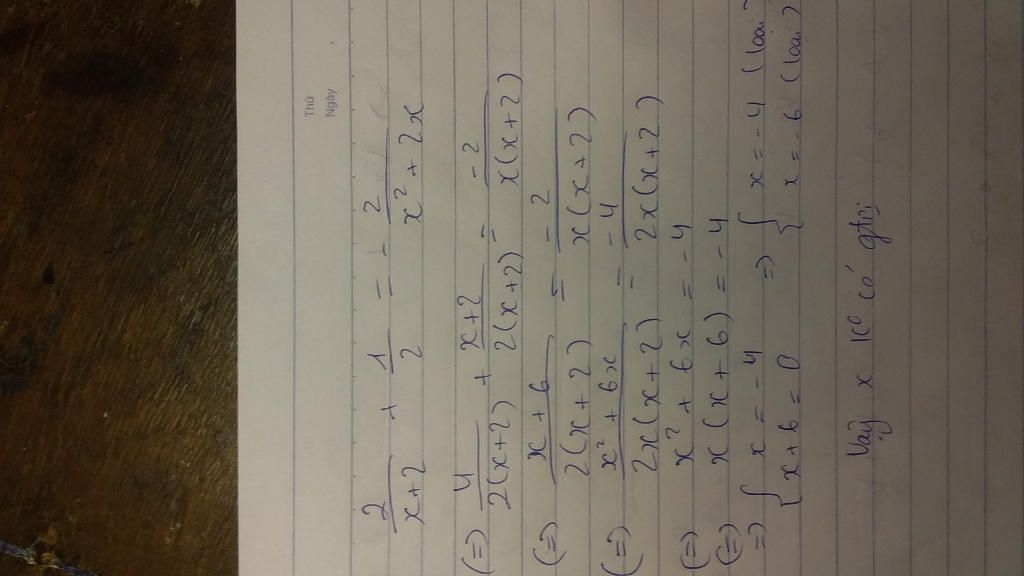 Thứ
Ngày
2/(x+2) + 1/2 = -2/(x² + 2x)
(=) 4/(2(x+2)) + (x+2)/(2(x+2)) = -2/(x(x+2))
(=) (x+6)/(2(x+2)) = -2/(x(x+2))
(=) (x² + 6x)/(2x(x+2)) = -4/(2x(x+2))
(=) x² + 6x = -4
(=) x(x+6) = -4
=) { x = -4 =) { x = -4 (loại)
{ x+6 = 0 { x = -6 (loại)
Vậy x ko có gtrị